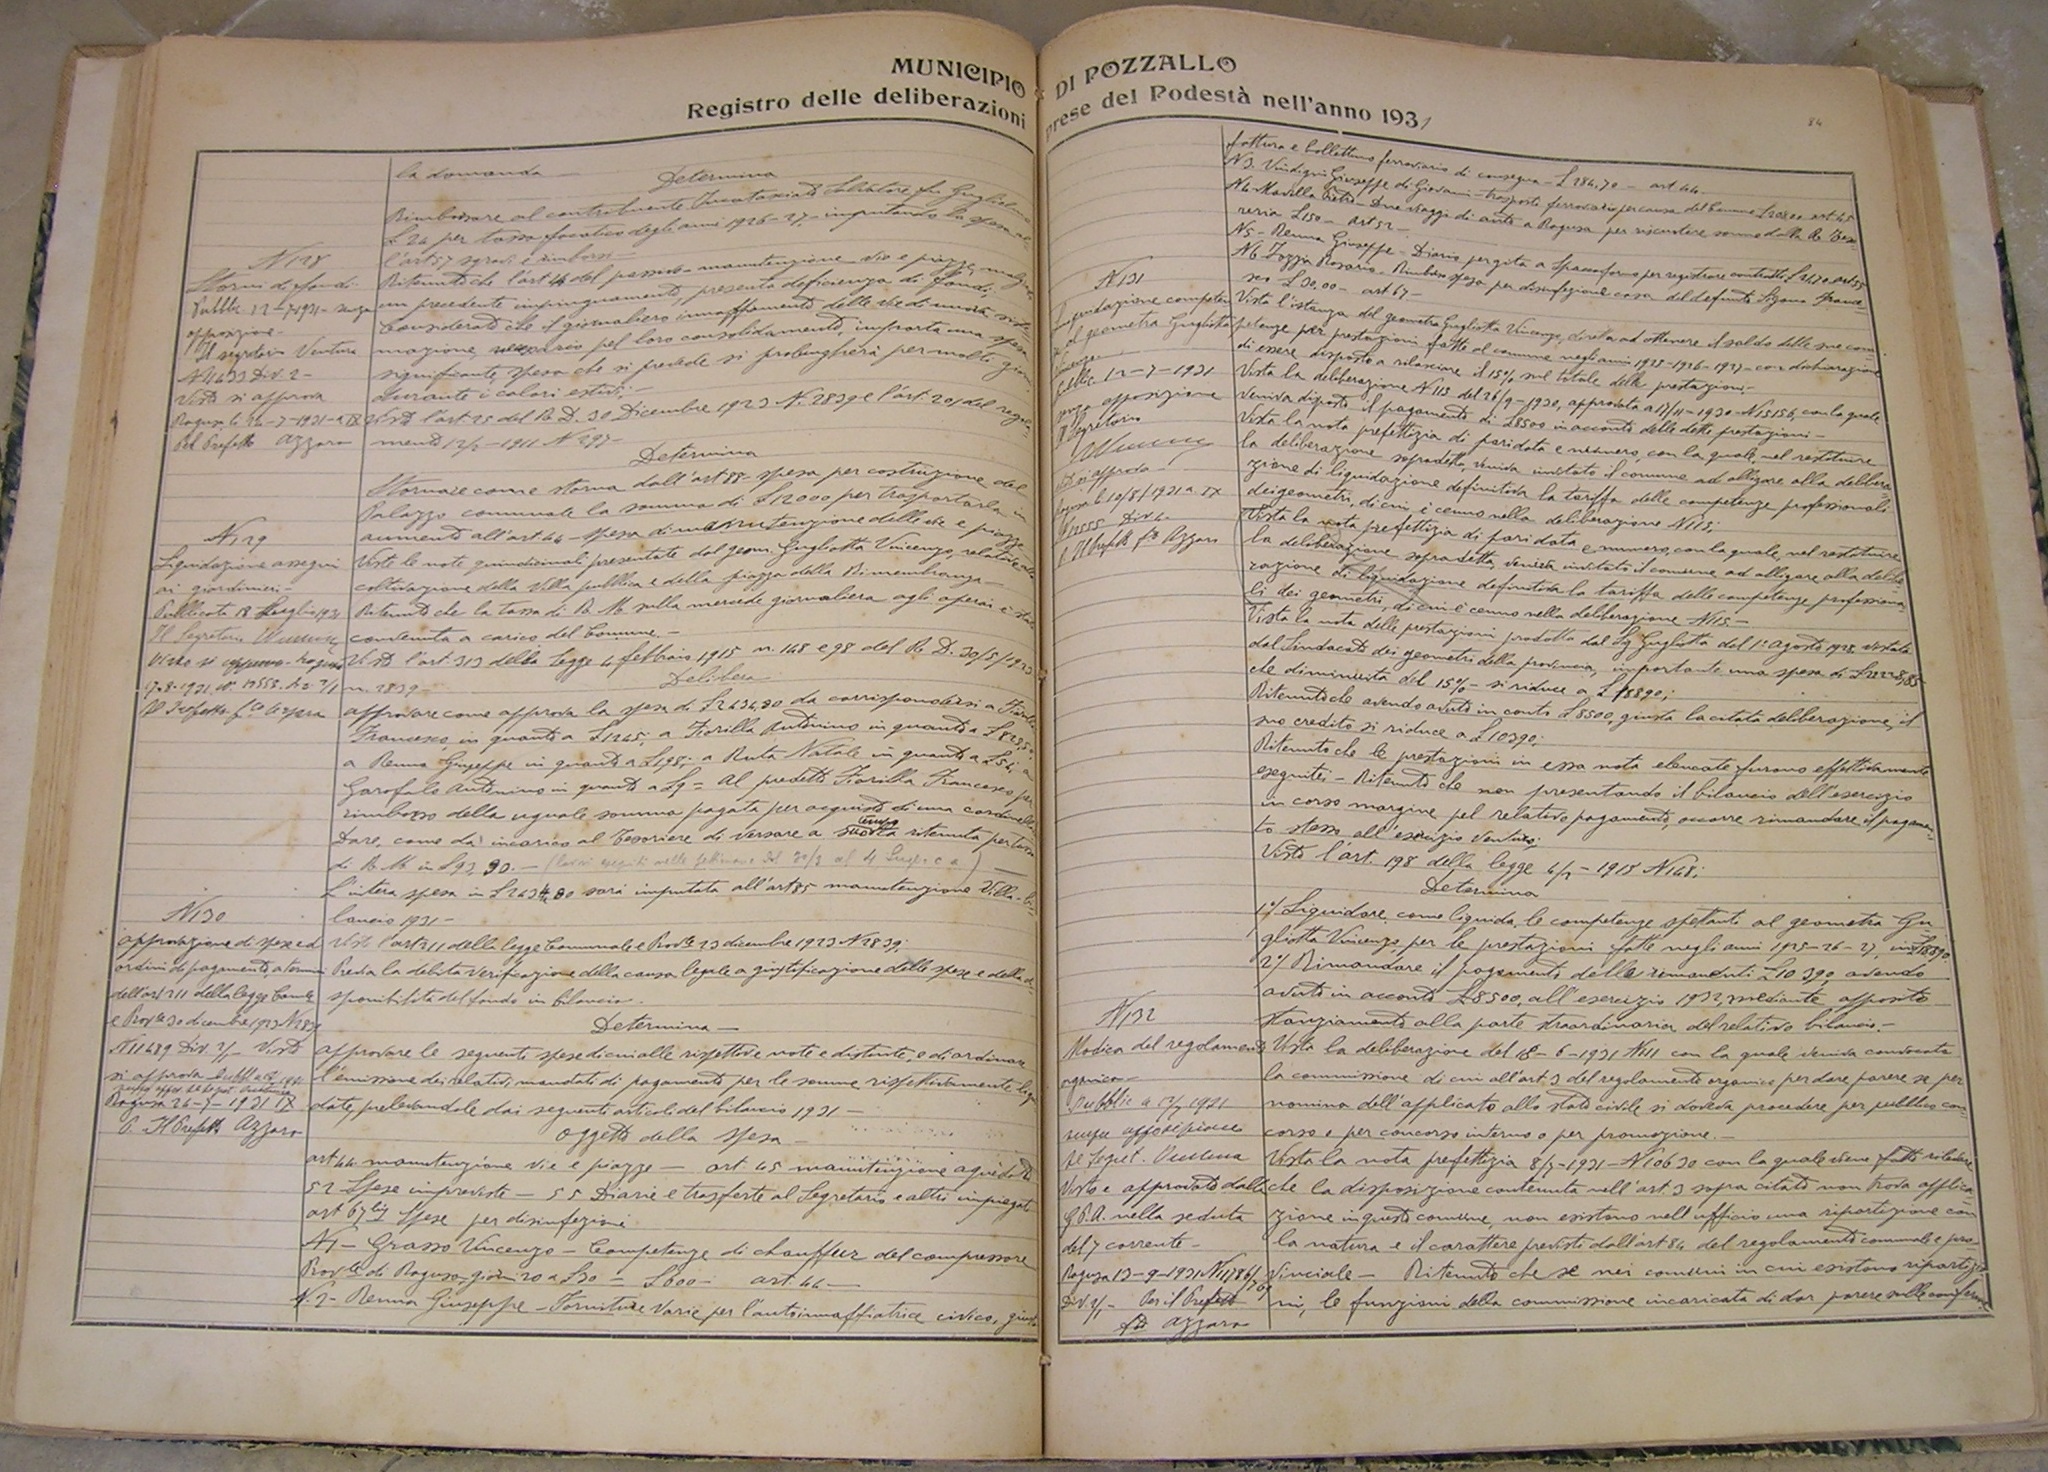 MUNICIPIO DI POZZALLO
Registro delle deliberazioni prese del Podestà nell'anno 1931
84
la domanda —
Determina
Rimborsare al contribuente Salvatore fu Guglielmo
£ 24 per tassa focatico degli anni 1926-27, imputando la spesa al
l'art 57 sgravi e rimborsi —
N 128
Storni di fondi
Pubblic 12-7-1931 - senza
opposizione -
Il segretario Ventura
N 11633 Div. 2 -
Visto si approva
Ragusa li 24-7-1931 - a IX
Pel Prefetto Azzaro
Ritenuto che l'art 44 del passivo - manutenzione vie e piazze, malgrado
un precedente impinguamento, presenta deficienza di fondi;
Considerato che il giornaliero innaffiamento delle vie di nuova siste-
mazione, necessario pel loro consolidamento, importa una spesa
significante, spesa che si prevede si prolungherà per molti giorni
durante i calori estivi; —
Visto l'art. 25 del R. D. 30 Dicembre 1923 N. 2839 e l'art. 201 del regola-
mento 12/2 - 1911 N 297 -
Determina
Stornare come storna dall'art 88 - spesa per costruzione del
Palazzo comunale la somma di £ 12000 per trasportarla in
aumento all'art. 44 - spesa di manutenzione delle vie e piazze
N 129
Liquidazione assegni
ai giardinieri -
Pubblicata 18 Luglio 1931
Il Segretario
Visto si approva - Ragusa
17-8-1931
Il Prefetto f.to Azzaro
Viste le note quindicinali presentate dal geom. Gugliotta Vincenzo, relative alla
coltivazione della Villa pubblica e della piazza della Rimembranza —
Ritenuto che la tassa di R. M. sulla mercede giornaliera agli operai è stata
contenuta a carico del Comune. —
Visto l'art. 313 della legge 4 febbraio 1915 n. 148 e 98 del R. D. 30/5/1923
n. 2839 -
Delibera
approvare come approva la spesa di £ 2434,80 da corrispondersi a Fiorilla
Francesco, in quanto a £ 1245; a Fiorilla Antonino in quanto a £
a Renna Giuseppe in quanto a £ a Ruta Natale in quanto a £ 54; a
Garofalo Antonino in quanto a £ 9 = Al predetto Fiorilla Francesco, per
rimborso della uguale somma pagata per acquisto di una cordinella
Dare, come dà incarico al Tesoriere di versare a suo tempo la ritenuta per tassa
di R. M. in £ 93,30. —
L'intera spesa in £ 2434,80 sarà imputata all'art 85 manutenzione Villa - bi-
lancio 1931 -
N 130
approvazione di spese ed
ordini di pagamento a termini
dell'art 211 della legge Com.le
e Prov.le 30 dicembre 1923 N 2839
N 11489 Div. 2/- Visto
si approva
Ragusa 26-7-1931 IX
P. Il Prefetto Azzaro
Visto l'art 211 della legge Comunale e Prov.le 23 dicembre 1923 N 2839;
Previa la debita verificazione della causa legale a giustificazione delle spese e della di-
sponibilità del fondo in bilancio.
Determina —
approvare le seguenti spese di cui alle rispettive note e distinte, e di ordinare
l'emissione dei relativi mandati di pagamento per le somme rispettivamente liqui
date, prelevandole dai seguenti articoli del bilancio 1931 —
oggetto della spesa —
art 44 manutenzione vie e piazze — art. 45 manutenzione acquedotto
52 Spese impreviste — 55 Diarie e trasferte al Segretario e altri impiegati
art 67 bis Spese per disinfezioni
N 1 - Grasso Vincenzo - Competenze di chauffeur del compressore
Prov.le di Ragusa, giorni 20 a £ 30 = £ 600 - art. 44 —
N. 2 - Renna Giuseppe - Forniture varie per l'autoinnaffiatrice civica, giusta
fattura e bollettino ferroviario di consegna - £ 284,70 - art 44
N 3. Vindigni Giuseppe di Giovanni - trasporti ferroviario per causa del Comune £ art 45
N 4 Modella Pietro - Due viaggi di auto a Ragusa per riscuotere somme dalla R. Teso-
reria £ 150 - art 52 -
N 5 - Renna Giuseppe - Diaria per gita a Spaccaforno per registrare contratto £ 24,70 art 55
N 6 Iozzia Rosario - Rimborso spesa per disinfezione casa del defunto France-
sco £ 30,00 - art 67 -
N 131
Liquidazione competen
ze al geometra Gugliotta
Vincenzo
Pubblic. 12-7-1931
senza opposizione
Il Segretario
Visto si approva -
Ragusa li 10/8/1931 a. IX
N 12555 Div. 2
p. Il Prefetto f.to Azzaro
Vista l'istanza del geometra Gugliotta Vincenzo, diretta ad ottenere il saldo delle sue com-
petenze per prestazioni fatte al comune negli anni 1925-1926-1927 - con dichiarazione
di essere disposto a rilasciare il 15% sul totale delle prestazioni -
Vista la deliberazione N 113 del 26/9 - 1930, approvata a 17/11 - 1930 - N 15156, con la quale
veniva disposto il pagamento di £ 8500 in acconto delle dette prestazioni —
Vista la nota prefettizia di pari data e numero, con la quale, nel restituire
la deliberazione sopradetta, veniva invitato il comune ad allegare alla delibera-
zione di liquidazione definitiva la tariffa delle competenze professionali
dei geometri, di cui è cenno nella deliberazione N 113;
Vista la nota prefettizia di pari data e numero, con la quale, nel restituire
la deliberazione sopradetta, veniva invitato il comune ad allegare alla delibe
razione di liquidazione definitiva la tariffa delle competenze professiona
li dei geometri, di cui è cenno nella deliberazione N 113 -
Vista la nota delle prestazioni prodotta dal Sig Gugliotta del 1° agosto 1928 vistata
dal Sindacato dei geometri della provincia, importante una spesa di £
che diminuita del 15% - si riduce a £ 18890;
Ritenuto che avendo avuto in conto £ 8500, giusta la citata deliberazione, il
suo credito si riduce a £ 10390;
Ritenuto che le prestazioni in essa nota elencate furono effettivamente
eseguite; - Ritenuto che non presentando il bilancio dell'esercizio
in corso margine pel relativo pagamento, occorre rimandare il pagamen-
to stesso all'esercizio venturo;
Visto l'art. 198 della legge 4/2 - 1915 N 148;
Determina
1°/ Liquidare, come liquida, le competenze spettanti al geometra Gu-
gliotta Vincenzo, per le prestazioni fatte negli anni 1925-26-27, in £ 18890
2°/ Rimandare il pagamento delle rimanenti £ 10390, avendo
avuto in acconto £ 8500, all'esercizio 1932, mediante apposito
stanziamento alla parte straordinaria del relativo bilancio. —
N 132
Modica del regolamento
organico
Pubblic a 12/7 1931
senza opposizione
Il Segret. Ventura
Visto e approvato dalla
G.P.A. nella seduta
del 7 corrente -
Ragusa 13-9-1931
Div. 2/- Per il Prefetto
f.to Azzaro
Vista la deliberazione del 18-6-1931 N 111 con la quale veniva convocata
la commissione di cui all'art. 3 del regolamento organico per dare parere se per
nomina dell'applicato allo stato civile si doveva procedere per pubblico con-
corso o per concorso interno o per promozione. —
Vista la nota prefettizia 8/7 - 1931 - N 10630 con la quale viene fatto rilevare
che la disposizione contenuta nell'art. 3 sopra citato non trova applica-
zione in questo comune, non esistono nell'ufficio una ripartizione con
la natura e il carattere previsti dall'art 84 del regolamento comunale e pro-
vinciale — Ritenuto che se nei comuni in cui esistono ripartizio
ni, le funzioni della commissione incaricata di dar parere sulle conferme